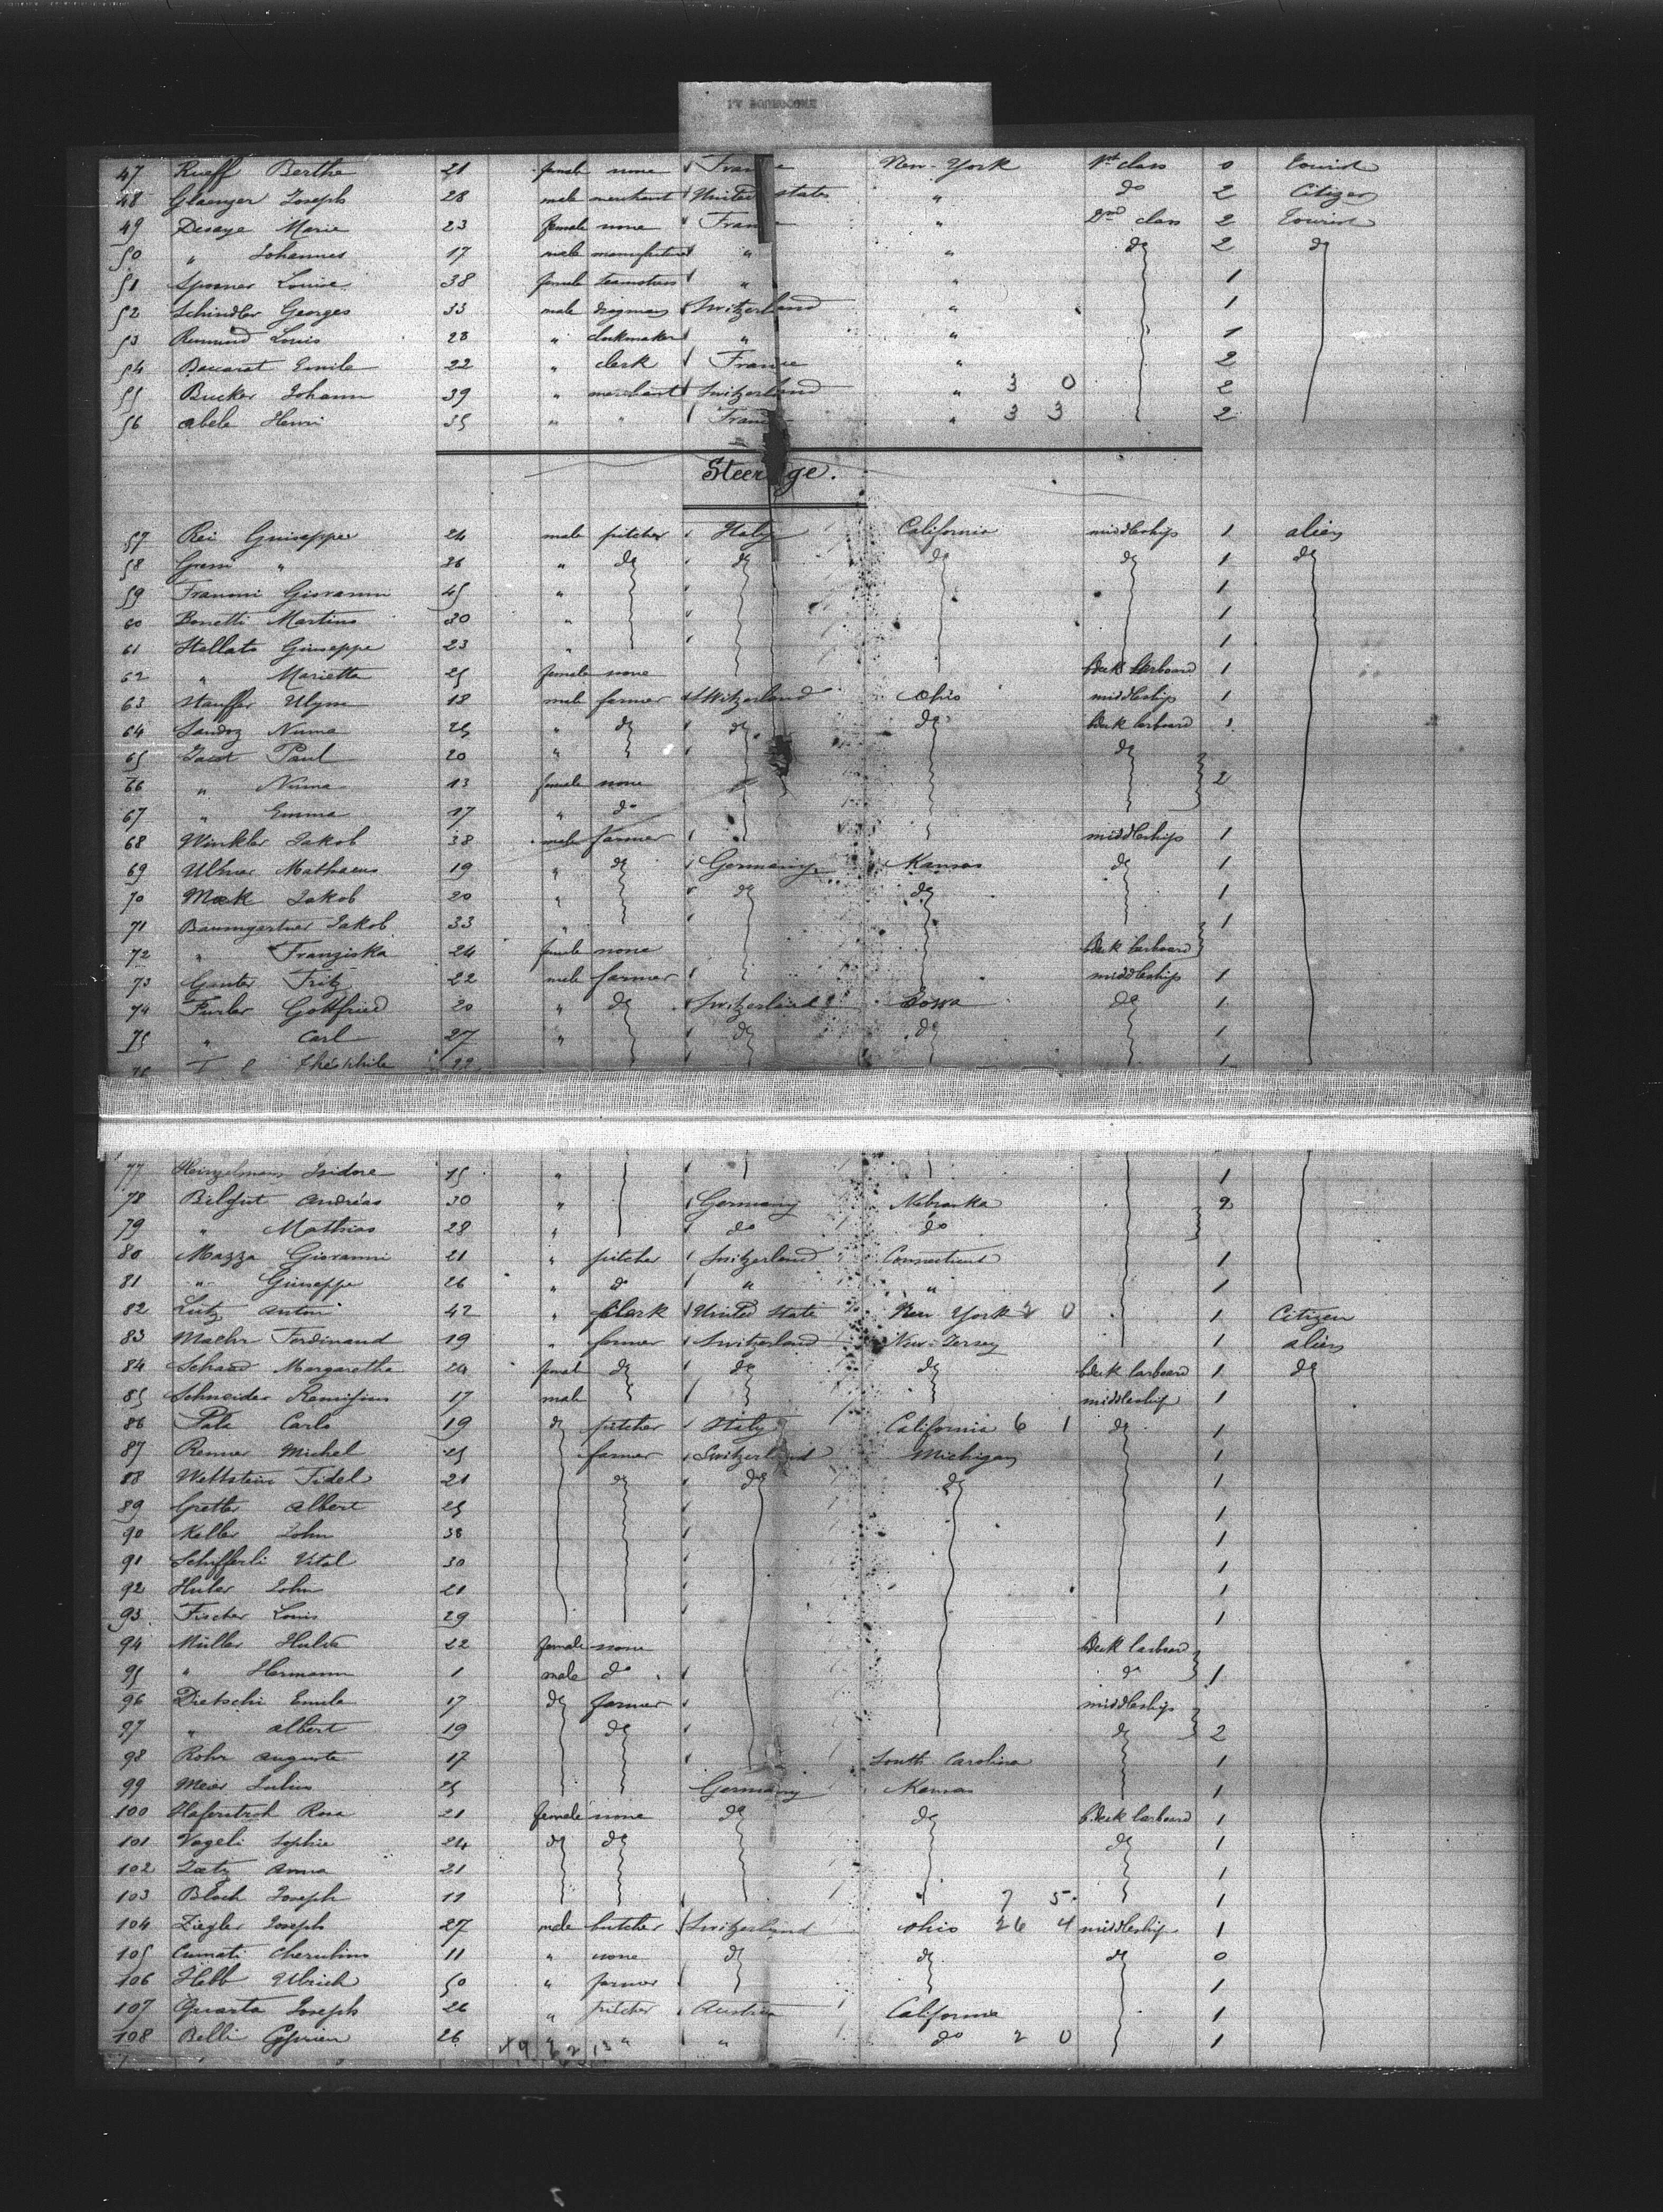 47 Rueff Berthe 21 female none France New-York 1st class 0 tourist
48 Glaenzer Joseph 28 male merchant United states " do 2 Citizen
49 Desaye Marie 23 female none France " 2nd class 2 tourist
50 " Johannes 17 male " " do 2 do
51 Spooner Louise 38 female " " 1
52 Schindler Georges 33 male Switzerland " 1
53 Louis 28 " clockmaker " " 1
54 Baccarat Emile 22 " clerk France " 2
55 Bucker Johann 39 " merchant Switzerland " 3 0 2
56 Abele Henri 35 " " France " 3 3 2
Steerage.
57 Rei Guiseppe 24 male pitcher Italy California middleship 1 alien
58 Grassi " 36 " do do do do 1 do
59 Giovanni 45 " 1
60 Bonetti Martino 30 " 1
61 Stellato Giuseppe 23 " 1
62 " Marietta 25 female none bdeck larboard 1
63 Stauffer 18 male farmer Switzerland Ohio middleship 1
64 Sandoz Numa 25 " do do do bdeck larboard 1
65 Jacot Paul 20 " do
66 " Numa 13 female none 2
67 " Emma 17 " do
68 Winkler Jakob 38 male farmer middleship 1
69 Ulmer Mathaeus 19 " do Germany Kansas do 1
70 Mack Jakob 20 " do do 1
71 Baumgartner Jakob 33 " 1
72 " Franziska 24 female none bdeck larboard
73 Gunter Fritz 22 male farmer middleship 1
74 Furler Gottfried 20 " do Switzerland Iowa do 1
75 " Carl 27 " do do 1
76 Théophile 22 1
77 Heinzelmann Isidore 15 " 1
78 Andréas 30 " Germany Nebraska 2
79 " Mathias 28 " do do
80 Mazza Giovanni 21 " pitcher Switzerland Connecticut 1
81 " Giuseppe 26 " do " " 1
82 Lutz Antoni 42 " clerk United State New York 2 0 1 Citizen
83 Maehr Ferdinand 19 " farmer Switzerland New-Jersey 1 alien
84 Schaad Margaretha 24 femal do do do bdeck larboard 1 do
85 Schneider Remigius 17 male middleship 1
86 Carlo 19 do pitcher Italy California 6 1 do 1
87 Renner Michel 25 farmer Switzerland Michigan 1
88 Wettstein Fidel 21 do do do 1
89 Gretter Albert 25 1
90 Keller John 38 1
91 Schifferli Vital 30 1
92 Huber John 21 1
93 Fischer Louis 29 1
94 Müller Hulda 22 female none bdeck larboard
95 " Hermann 1 male do do 1
96 Dietschi Emile 17 do farmer middleship
97 " Albert 19 do do 2
98 Rohr Auguste 17 South Carolina 1
99 Meier Julius 25 Germany Kansas 1
100 Haferstroh Rosa 21 female none do do bdeck larboard 1
101 Vogeli Sophie 24 do do do 1
102 Anna 21 1
103 Bloch Joseph 11 7 5 1
104 Ziegler Joseph 27 male butcher Switzerland Ohio 26 4 middleship 1
105 Cumati Cherubino 11 " none do do do 0
106 Hebb Ulrich 50 " farmer 1
107 Quarta Joseph 26 " pitcher Austria California 1
108 Belli Cyprien 26 " " " do 2 0 1